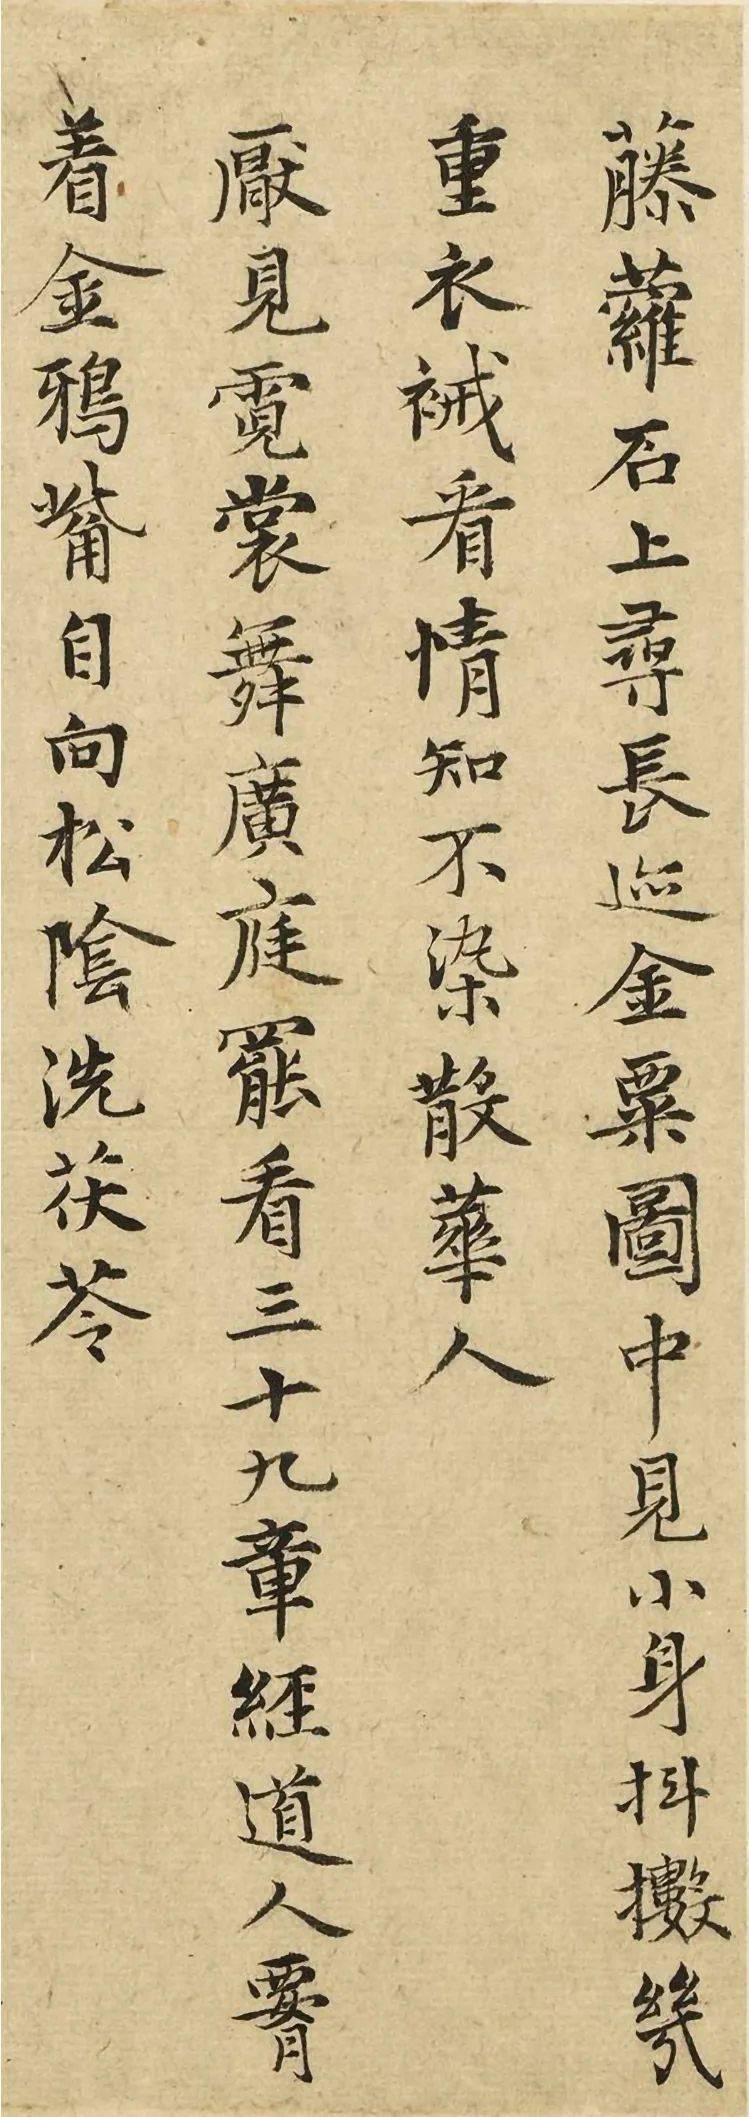 藤蘿石上尋長巡金粟圖中見小身抖擻幾
重衣裓看情知不染散華人
厭見霓裳舞廣庭罷看三十九章經道人腰
着金鴉觜自向松陰洗茯苓